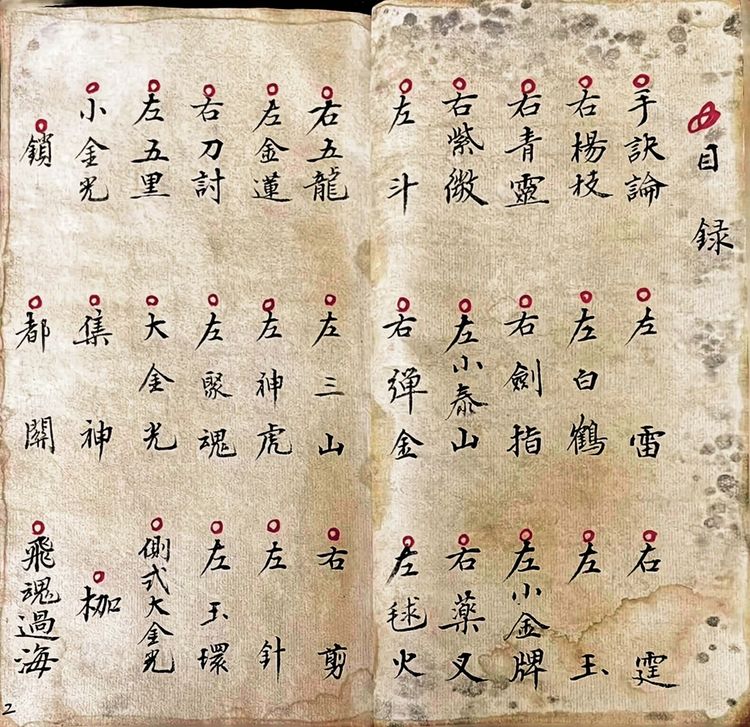 目録
手訣論
左雷
右霆
右楊枝
左白鶴
左玉
右青靈
右劍指
左小金牌
右紫微
左小泰山
右藥叉
左斗
右彈金
左毬火
右五龍
左三山
右剪
左金蓮
左神虎
左針
右刀討
左聚魂
左玉環
左五里
大金光
側式大金光
小金光
集神
枷
鎖
都關
飛魂過海
2